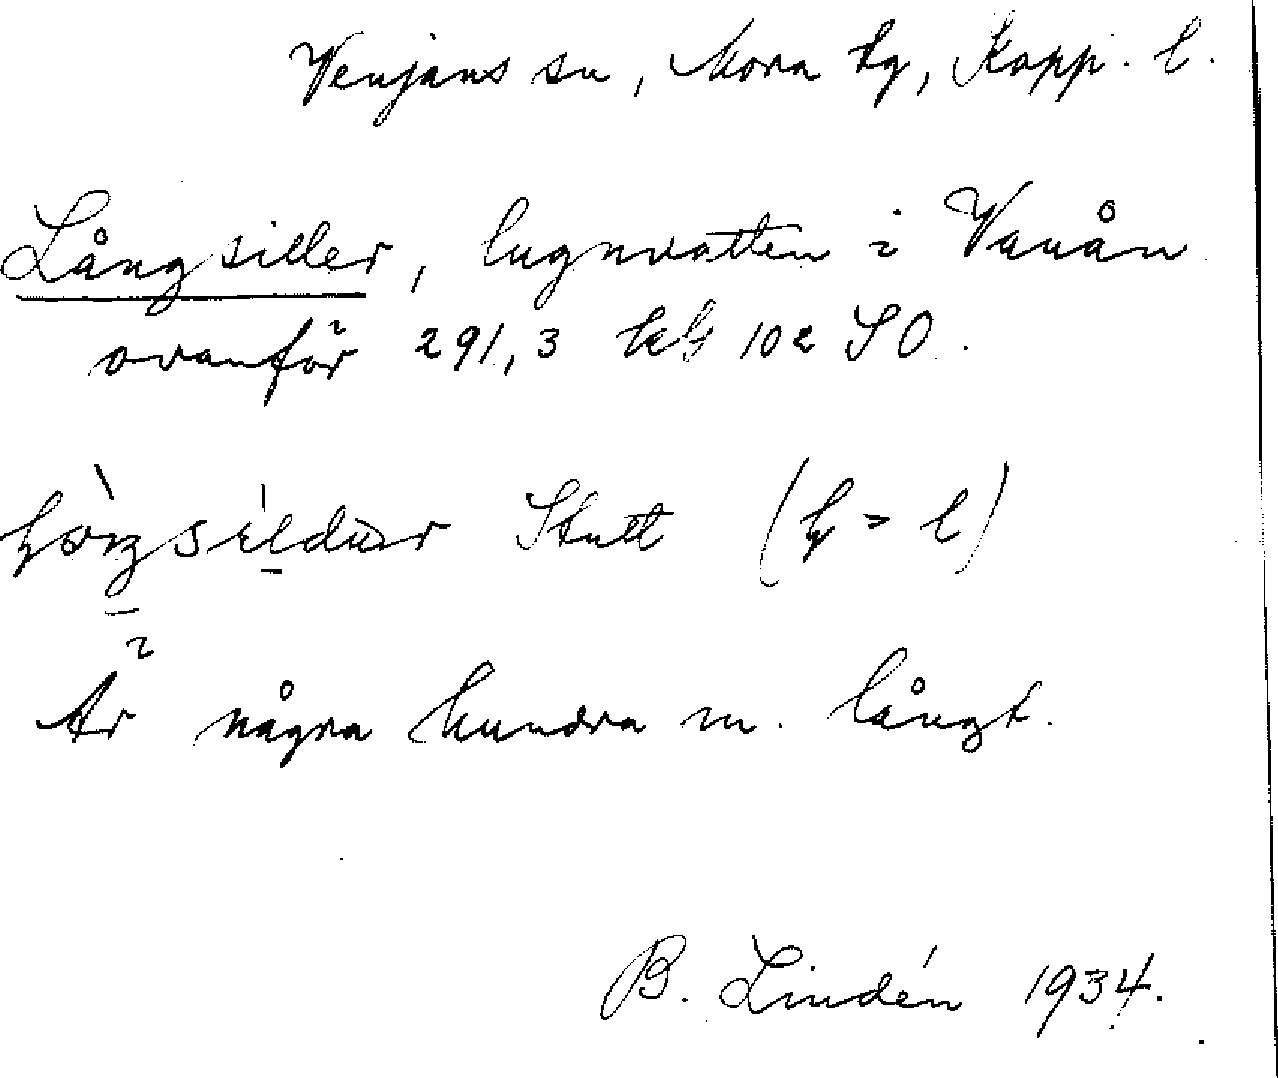 Venjans sn, Mora tg, Kopp. l.
Långsiller, lugnvatten i Vanån
ovanför 291,3 kbl 102 SO.
Stutt ( = l)
Är några hundra m. långt.
B. Lindén 1934.